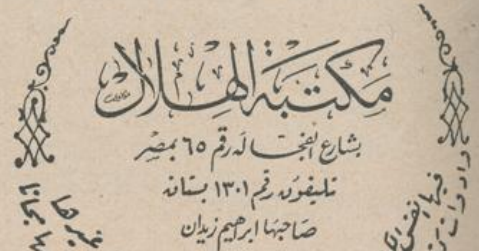 مكتبة الهلال
بشارع الفجالة رقم ٦٥ بمصر
تليفون رقم ١٣٠١ بستان
صاحبها ابراهيم زيدان